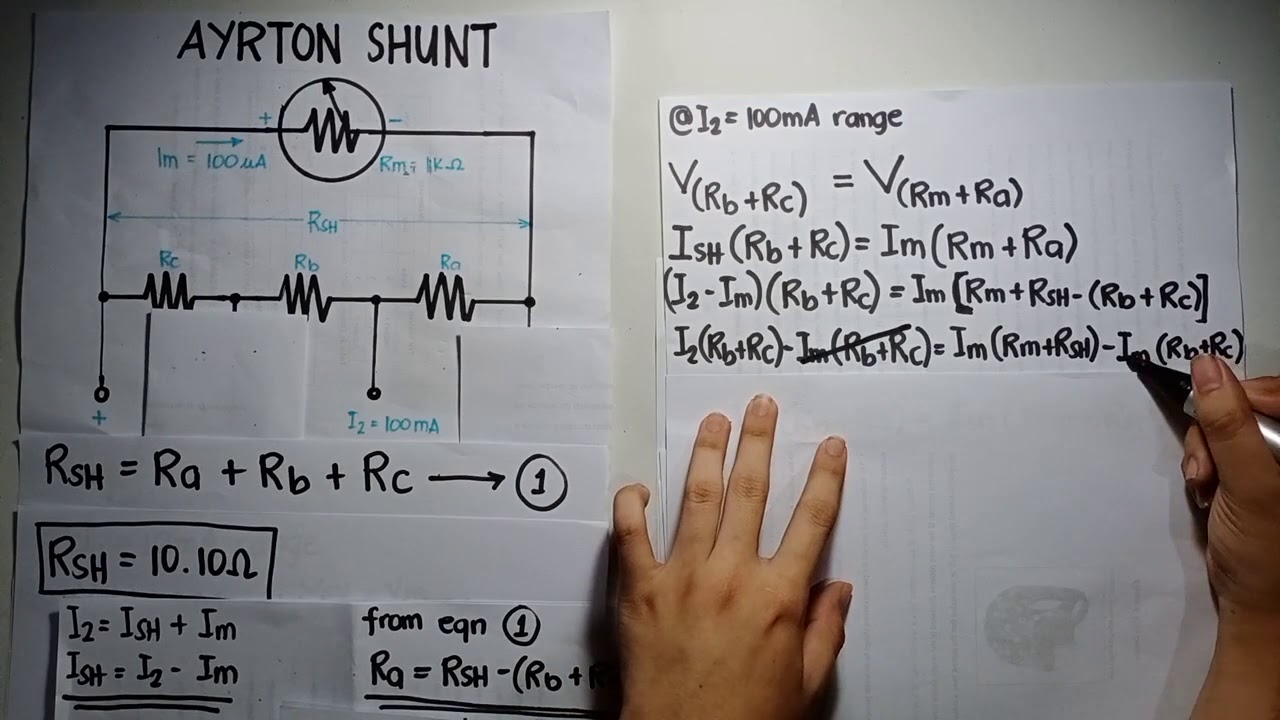 AYRTON SHUNT
+ -
Im = 100μA
Rm = 1KΩ
RSH
Rc Rb Ra
+
I2 = 100mA
RSH = Ra + Rb + Rc → 1
RSH = 10.10Ω
I2 = ISH + Im
ISH = I2 - Im
from eqn 1
Ra = RSH - (Rb + R
@I2 = 100mA range
V(Rb + Rc) = V(Rm + Ra)
ISH (Rb + Rc) = Im (Rm + Ra)
(I2 - Im) (Rb + Rc) = Im [Rm + RSH - (Rb + Rc)]
I2 (Rb + Rc) - Im (Rb + Rc) = Im (Rm + RSH) - Im (Rb + Rc)